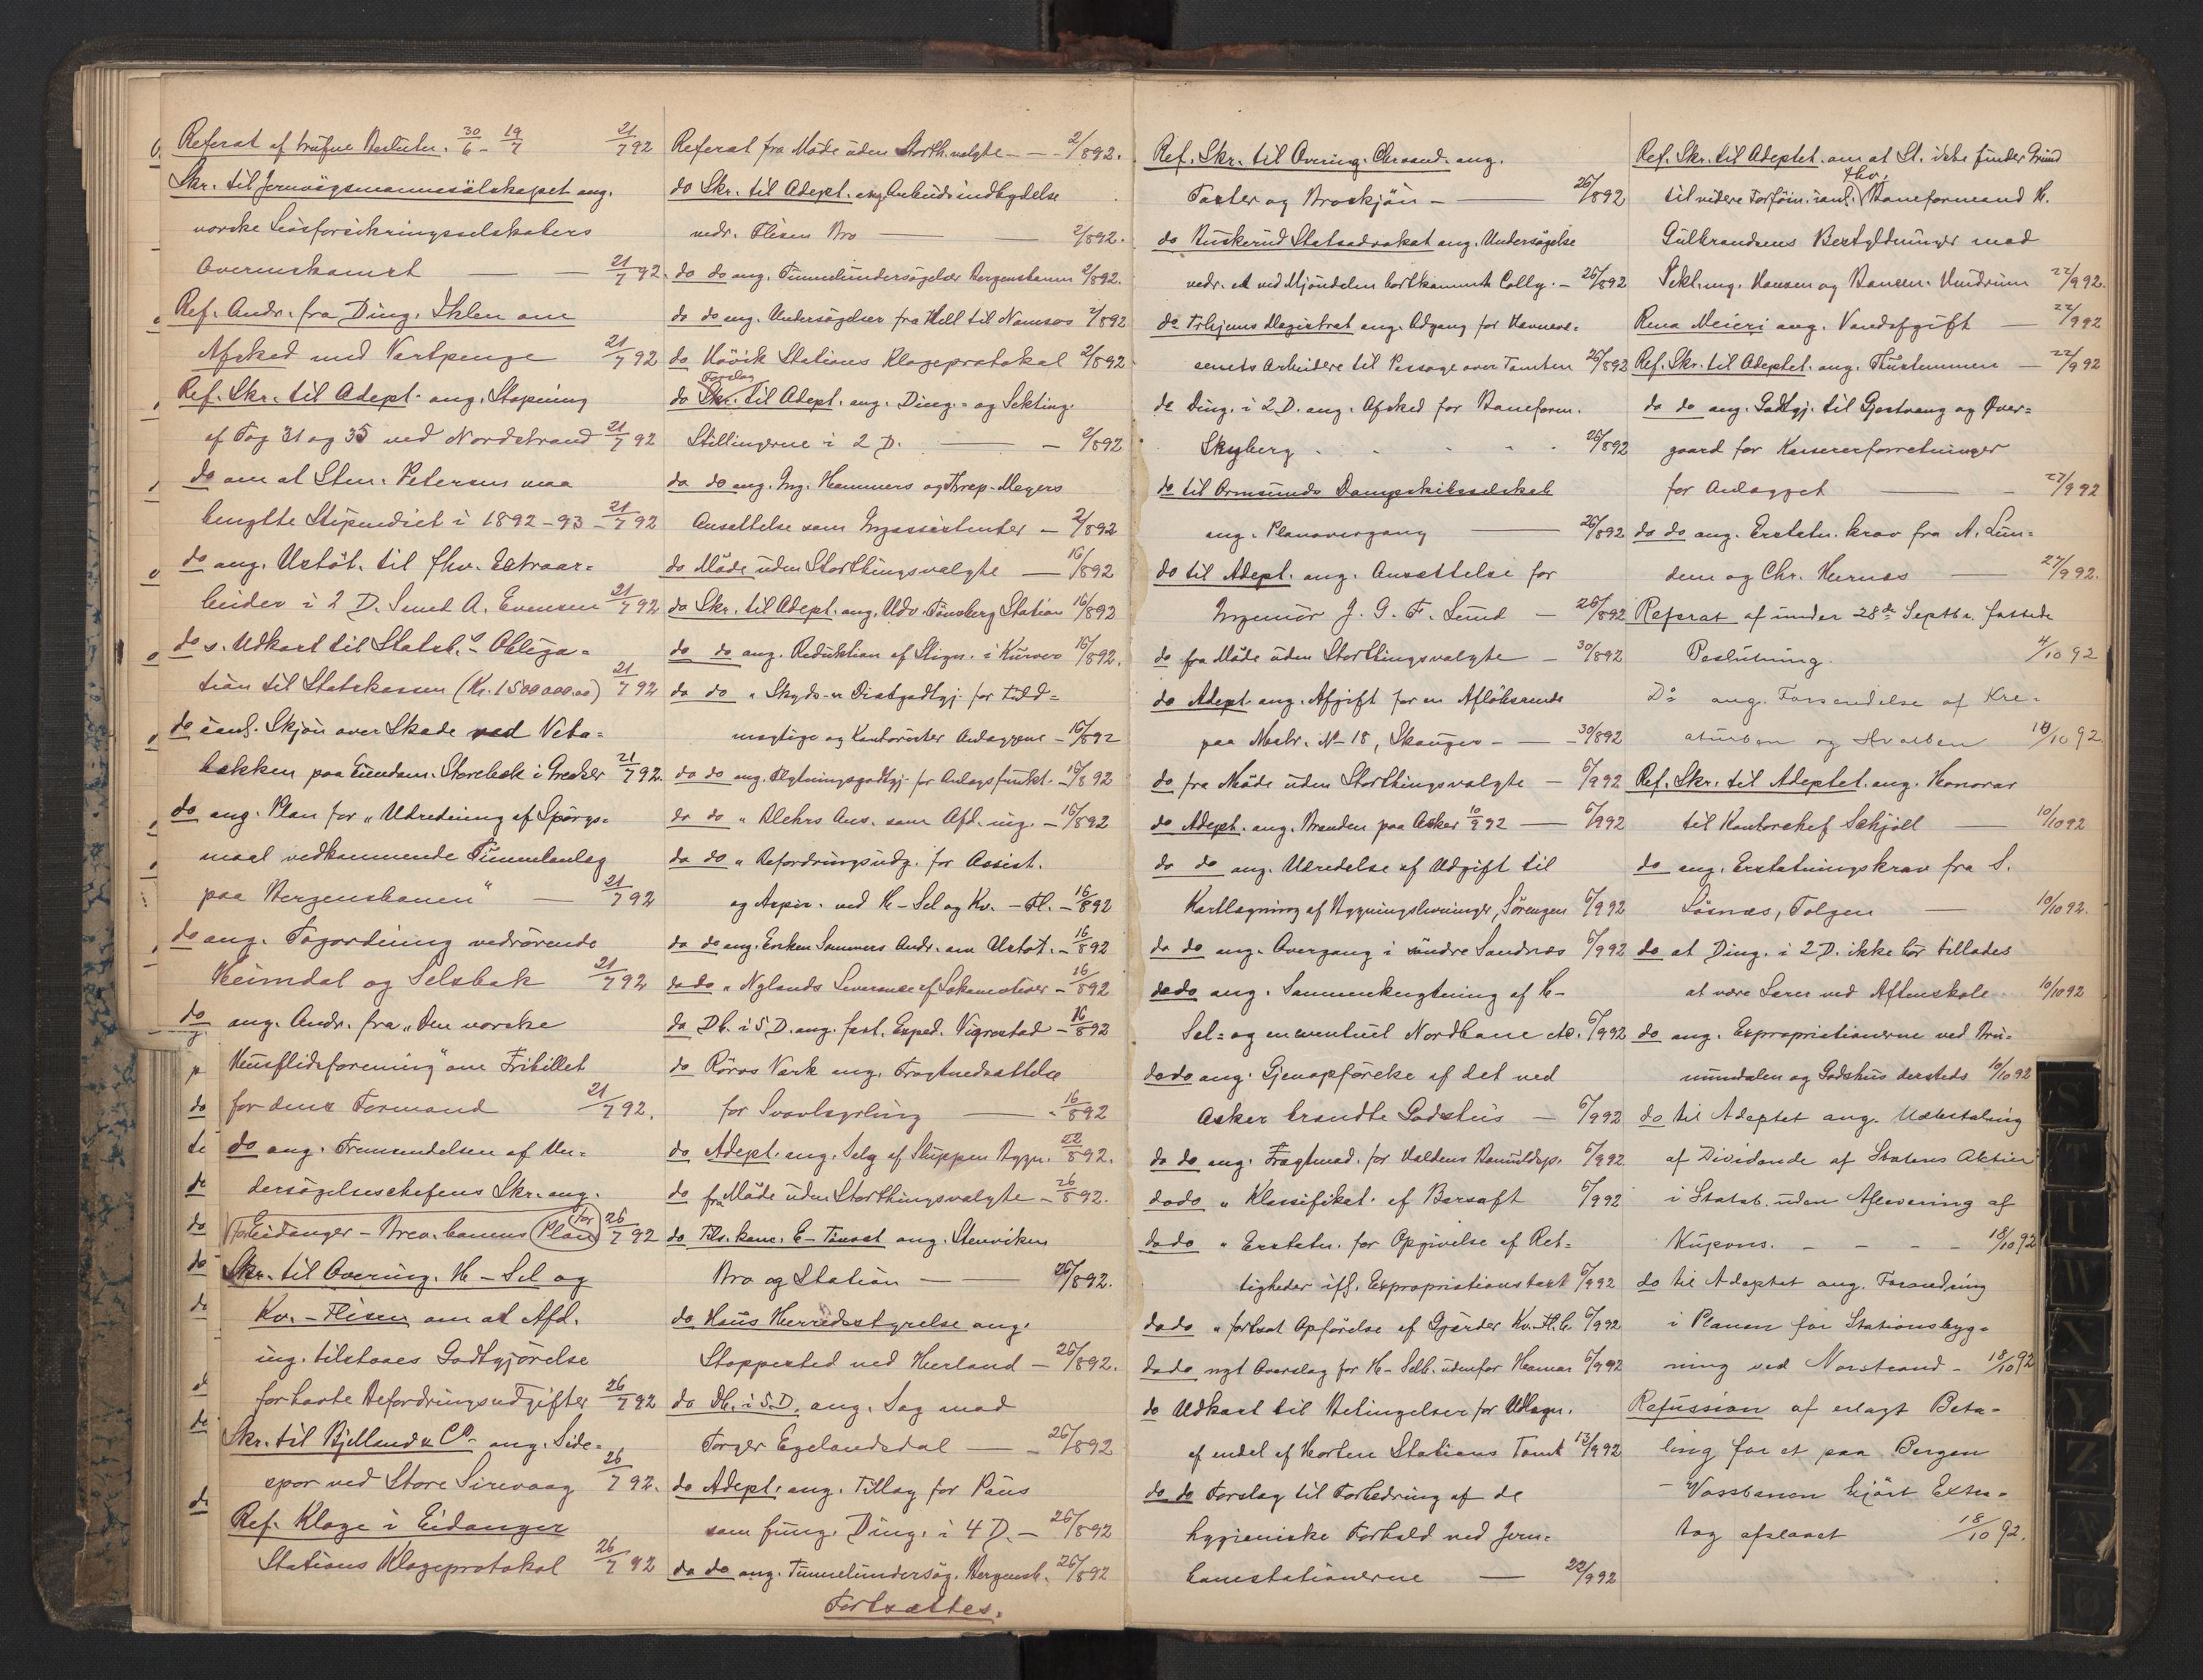 Referat af trufne Beslutn. 30/6 - 19/7 21/7 92
Skr. til Jernvägsmannasälskapet ang.
norske Livsforsikringsselskabers
Overenskomst 21/7 92.
Ref. Andr. fra Ding. Ihlen om
Afsked med Vartpenge 21/7 92
Ref. Skr. til Adept. ang. Stopning
af Tog 31 og 35 ved Nordstrand 21/7 92
do om at Sten. Petersen maa
benytte Stipendiet i 1892-93 - 21/7 92
do ang. Understöt. til fhv. Extraar=
beider i 2 D. Smed A. Evensen 21/7 92
do s. Udkast til Statsb.s Obliga=
tion til Statskassen (Kr. 1500 000.00) 21/7 92
do ianl. Skjön over Skade ved Veta=
bakken paa Eiendom. Storebæk i Greaker 21/7 92.
do ang. Plan for „Udredning af Spörgs=
maal vedkommende Tunnelanlæg
paa Bergensbanen" 21/7 92
do ang. Togordning vedrörende
Heimdal og Selsbak 21/7 92
do ang. Andr. fra „Den norske
Husflidsforening" om Fribillet
for dens Formand 21/7 92.
do ang. Fremsendelsen af Un=
dersögelseschefens Skr. ang.
for Eidanger - Brev. banens Plan 26/7 92
Skr. til Overing. H - Sel og
Kv. - Flisen om at Afd.
ing. tilstaaes Godtgjörelse
for havte Befordringsudgifter 26/7 92
Skr. til Bjelland & Co ang. Side=
spor ved Store Sirevaag 26/7 92.
Ref. Klage i Eidanger
Stations Klageprotokol 26/7 92
Referat fra Möde uden Storth.valgte - 2/8 92.
do Skr. til Adept. ang. Anbudsindbydelse
vedr. Flisen Bro 2/8 92.
do do ang. Tunnelundersögelser Bergensbanen 2/8 92.
do do ang. Undersögelser fra Hell til Namsos 2/8 92
do Hövik Stations Klageprotokol 2/8 92
Forslag
do Skr. til Adept. ang. Ding.= og Sekting.
Stillingerne i 2 D. 2/8 92
do do ang. Ing. Hammers og Thrap-Meyers
Ansættelse som Ingassistenter - 2/8 92
do Möde uden Storthingsvalgte 16/8 92
do Skr. til Adept. ang. Udv. Tönsberg Station 16/8 92
do do ang. Reduktion af Stign. i Kurver 16/8 92.
do do „ Skyds- og Diætgodtgj. for Fuld=
mægtige og Kontorister Anlæggene - 16/8 92
do do ang. Flytningsgodtgj. for Anlægsfunkt. - 16/8 92
do do „ Blehrs Ans. som Afd. ing. - 16/8 92
do do „ Befordringsudg. for Assist.
og Aspir. ved H - Sel og Kv. - Fl. - 16/8 92
do do ang. Enken Sommers Andr. om Understöt. - 16/8 92
do do „ Nylands Leverance af Lokomotiver - 16/8 92
do Db. i 5 D. ang. fast. Exped. Vigrestad - 16/8 92
do Röros Værk ang. Fragtnedsættelse
for Svovlsyrling 16/8 92
do Adept. ang. Salg af Skuppen Bygn. 22/8 92.
do fra Möde uden Storthingsvalgte - 26/8 92.
do Tils. kom. E - Tönset ang. Stenviken
Bro og Station 26/8 92.
do Haus Herredsstyrelse ang.
Stoppested ved Herland - 26/8 92.
do Db. i 5 D. ang. Sag mod
Torger Egelandsdal 26/8 92
do Adept. ang. Tillæg for Paus
som fung. Ding. i 4 D. - 26/8 92
do do ang. Tunnelundersög. Bergensb. 26/8 92
Fortsættes.
Ref. Skr. til Overing. Chrsand. ang.
Taxter og Broskjön - 26/8 92
do Buskerud Statsadvokat ang. Undersögelse
vedr. et ved Mjöndalen bortkommet Colly. - 26/8 92
do Trhjems Magistrat ang. Adgang for Havnevæ=
senets Arbeidere til Passage over Tomten 26/8 92
do Ding. i 2 D. ang. Afsked for Baneform.
Skyberg 26/8 92
do til Ormsunds Dampskibsselskab
ang. Planovergang 26/8 92
do til Adept. ang. Ansættelse for
Ingeniör J. G. F. Lund - 26/8 92
do fra Möde uden Storthingsvalgte - 30/8 92
do Adept. ang. Afgift for en Aflöbsrende
paa Matr. No 18, Skauger - 30/8 92
do fra Möde uden Storthingsvalgte - 6/9 92
do Adept. ang. Branden paa Asker 10/9 92 6/9 92
do do ang. Udredelse af Udgift til
Kartlægning af Bygningslovninger, Sörengen 6/9 92
do do ang. Overgang i söndre Sandnæs 6/9 92
do do ang. Sammenknytning af H-
Sel= og en eventuel Nordbane etc. 6/9 92
do do ang. Gjenopförelse af det ved
Asker brændte Godshus 6/9 92
do do ang. Fragtmod. for Haldens Bomuldsp. 6/9 92.
do do „ Klassifikat. af Bærsaft 6/9 92
do do „ Erstatn. for Opgivelse af Ret=
tigheder iflg. Expropriationstaxt 6/9 92
do do „ fortsat Opförelse af Gjærder Kv. Fl. b. 6/9 92
do do nyt Overslag for H - Selb. udenfor Hamar 6/9 92
do Udkast til Betingelser for Udlægn.
af endel af Horten Stations Tomt 13/9 92
do do Forslag til Forbedring af de
hygieniske Forhold ved Jern=
banestationerne 22/9 92
Ref. Skr. til Adeptet. om at St. ikke finder Grund
fhv.
til videre Forföin. ianl. Baneformand H.
Gulbrandsens Beskyldninger mod
Sekt.ing. Hansen og Banem. Hundrum 22/9 92.
Rena Meieri ang. Vandafgift 22/9 92
Ref. Skr. til Adeptet. ang. 22/9 92
do do ang. Godtgj. til Gjestvang og Över=
gaard for Kassererforretninger
for Anlægget 27/9 92
do do ang. Erstatn. krav fra A. Lun=
dem og Chr. Hernæs 27/9 92.
Referat af under 28de Septbr. fattede
Beslutning. 4/10 92
Do ang. Forsendelse af Kre=
aturben og Hvalben 10/10 92
Ref. Skr. til Adeptet. ang. Honorar
til Kontorchef Schjöll 10/10 92
do ang. Erstatningskrav fra S.
Lösnæs, Tolgen 10/10 92.
do at Ding. i 2 D. ikke bör tillades
at være Lærer ved Aftenskole 10/10 92
do ang. Expropriationerne ved Bru=
mundalen og Godshus dersteds 10/10 92
do til Adeptet ang. Udbetaling
af Dividende af Statens Aktier
i Statsb. uden Aflevering af
Kupons. 18/10 92
do til Adeptet ang. Forandring
i Planen for Stationsbyg=
ning ved Norstrand - 18/10 92
Refussion af erlagt Beta=
ling for et paa Bergen
- Vossbanen kjört Extra=
tog afslaaet 18/10 92.
S
T
U
W
X
Y
Z
Æ
Ø